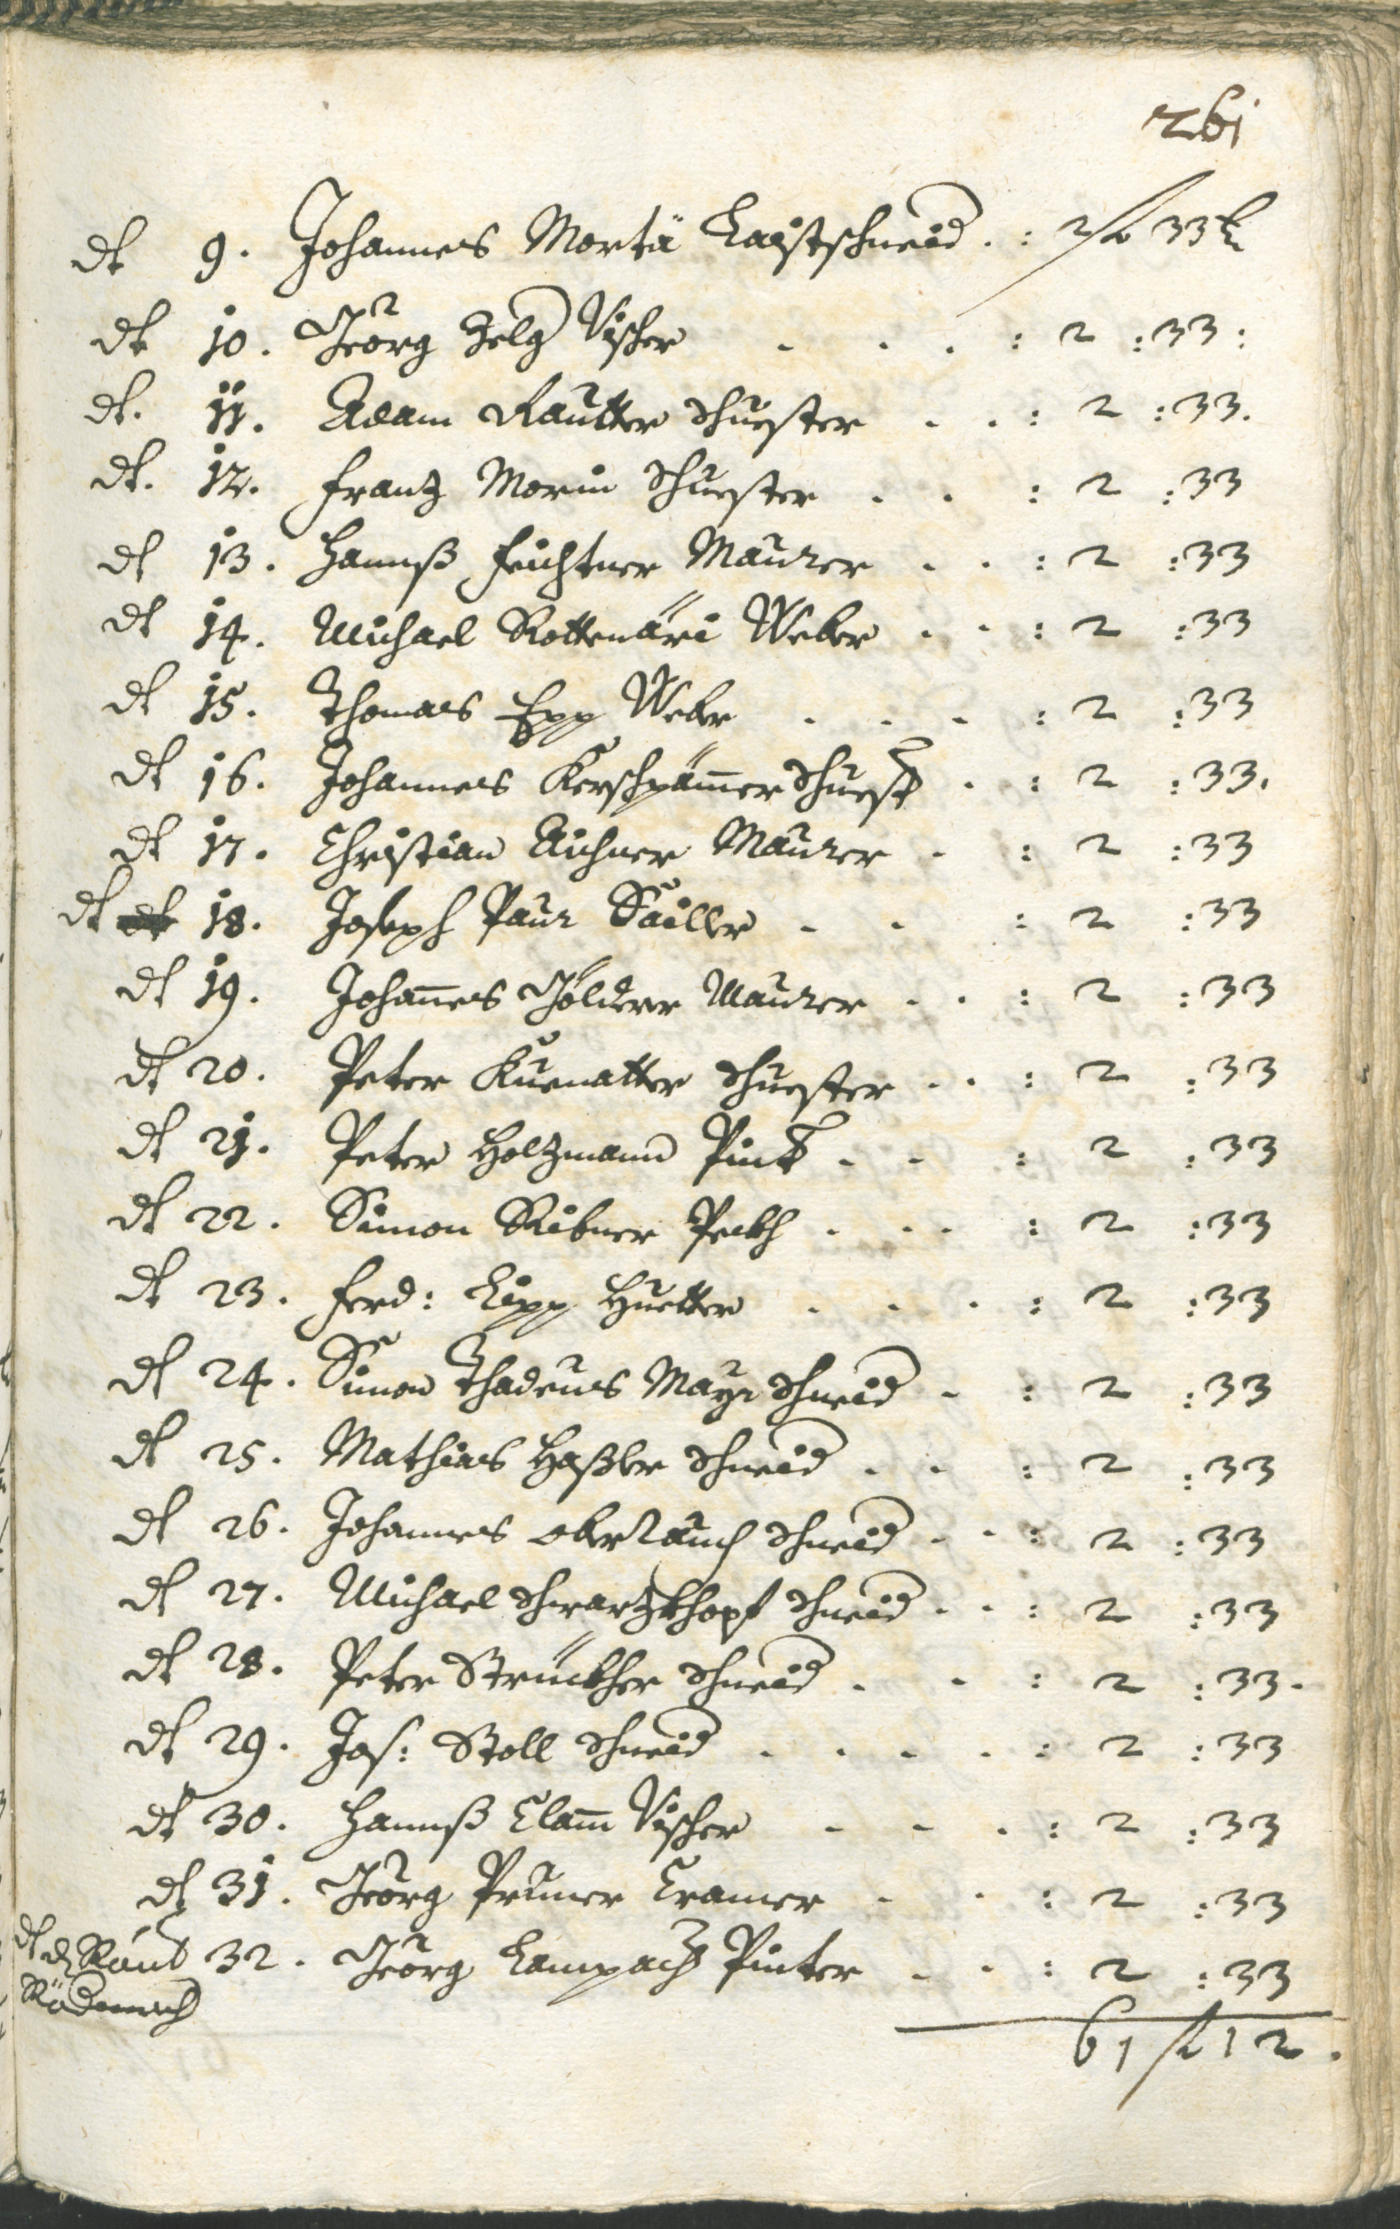 261
dt 9. Johannes Martä Laistschneid. : 2 f 33 k
dt 10. Georg Zelg Vischer . . . : 2 : 33 :
dt. 11. Adam Rautter Schuester . . : 2 : 33.
dt. 12. Frantz Morin Schuester . . : 2 : 33
dt 13. Hannß Feichtner Maurer . . : 2 : 33
dt 14. Michael Rottenäri Weber . . : 2 : 33
dt 15. Thomas Epp Weber . . . : 2 : 33
dt 16. Johannes Kerschpämer Schuest . : 2 : 33.
dt 17. Christian Aichner Maurer . : 2 : 33
dt 18. Joseph Paur Sailler . . : 2 : 33
dt 19. Johañes Gölderer Maurer . . : 2 : 33
dt 20. Peter Kuenatter Schuester . . : 2 : 33
dt 21. Peter Holtzmann Pint . . : 2 : 33
dt 22. Simon Ribner Peckh . . . : 2 : 33
dt 23. Ferd: Lipp Huetter . . . : 2 : 33
dt 24. Simon Thadeus Mayr Schneid . : 2 : 33
dt 25. Mathias Haßler Schneid . . : 2 : 33
dt 26. Johannes Oberrauch Schneid . . : 2 : 33
dt 27. Michael Schwartzkhopf Schneid . . : 2 : 33
dt 28. Peter Strückher Schneid . . : 2 : 33.
dt 29. Jos: Stoll Schneid . . . . : 2 : 33
dt 30. Hannß Clam̄ Vischer . . . : 2 : 33
dt 31. Georg Pruner Cramer . . : 2 : 33
dt 32. Georg Lampach Pinter . . : 2 : 33
61 f 12.